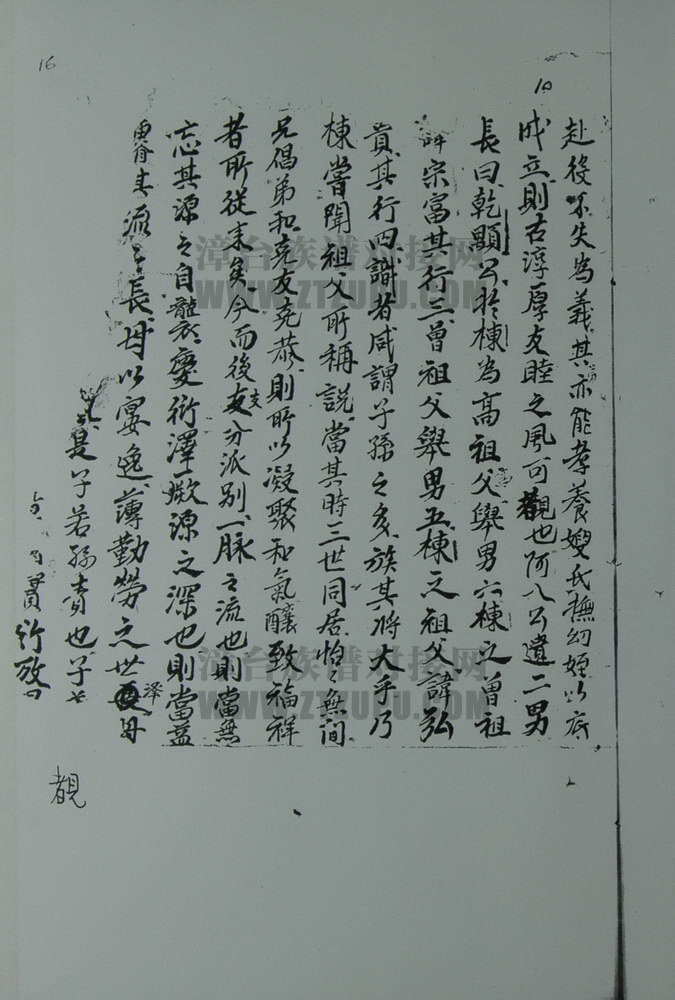 16
10
赴役不失為義其亦能孝養嫂氏撫幼姪以底
成立則古淳厚友睦之風可觀也阿八公遺二男
長曰乾顯公於棟為高祖父舉男六棟之曾祖
諱宗富其行三曾祖父舉男五棟之祖父諱弘
貢其行四識者咸謂子孫之多族其將大乎乃
棟嘗聞祖父所稱說當其時三世同居怡怡無間
兄倡弟和克友克恭則所以凝聚和氣釀致福祥
者所從來矣今而後支分派別一脈之流也則當無
支
忘其源之自發慶衍澤厥源之深也則當益
濬其流之長毋以宴逸薄勤勞之世澤毋
是子若孫責也子
行攷
覩
漳台族谱对接网
WWW.ZTZUPU.COM
漳台族谱对接网
WWW.ZTZUPU.COM